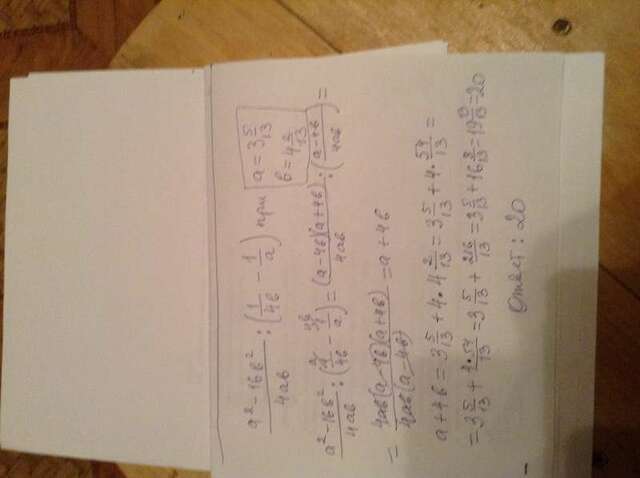 (a² - 16b²)/(4ab) : (1/(4b) - 1/a) при a = 3 5/13
b = 4 2/13
(a² - 16b²)/(4ab) : (1/(4b) - 1/a) = ((a-4b)(a+4b))/(4ab) : ((a-4b)/(4ab)) =
= (4ab(a-4b)(a+4b))/(4ab(a-4b)) = a+4b
a+4b = 3 5/13 + 4 • 4 2/13 = 3 5/13 + 4 • 54/13 =
= 3 5/13 + (4•54)/13 = 3 5/13 + 216/13 = 3 5/13 + 16 8/13 = 19 13/13 = 20
Ответ: 20